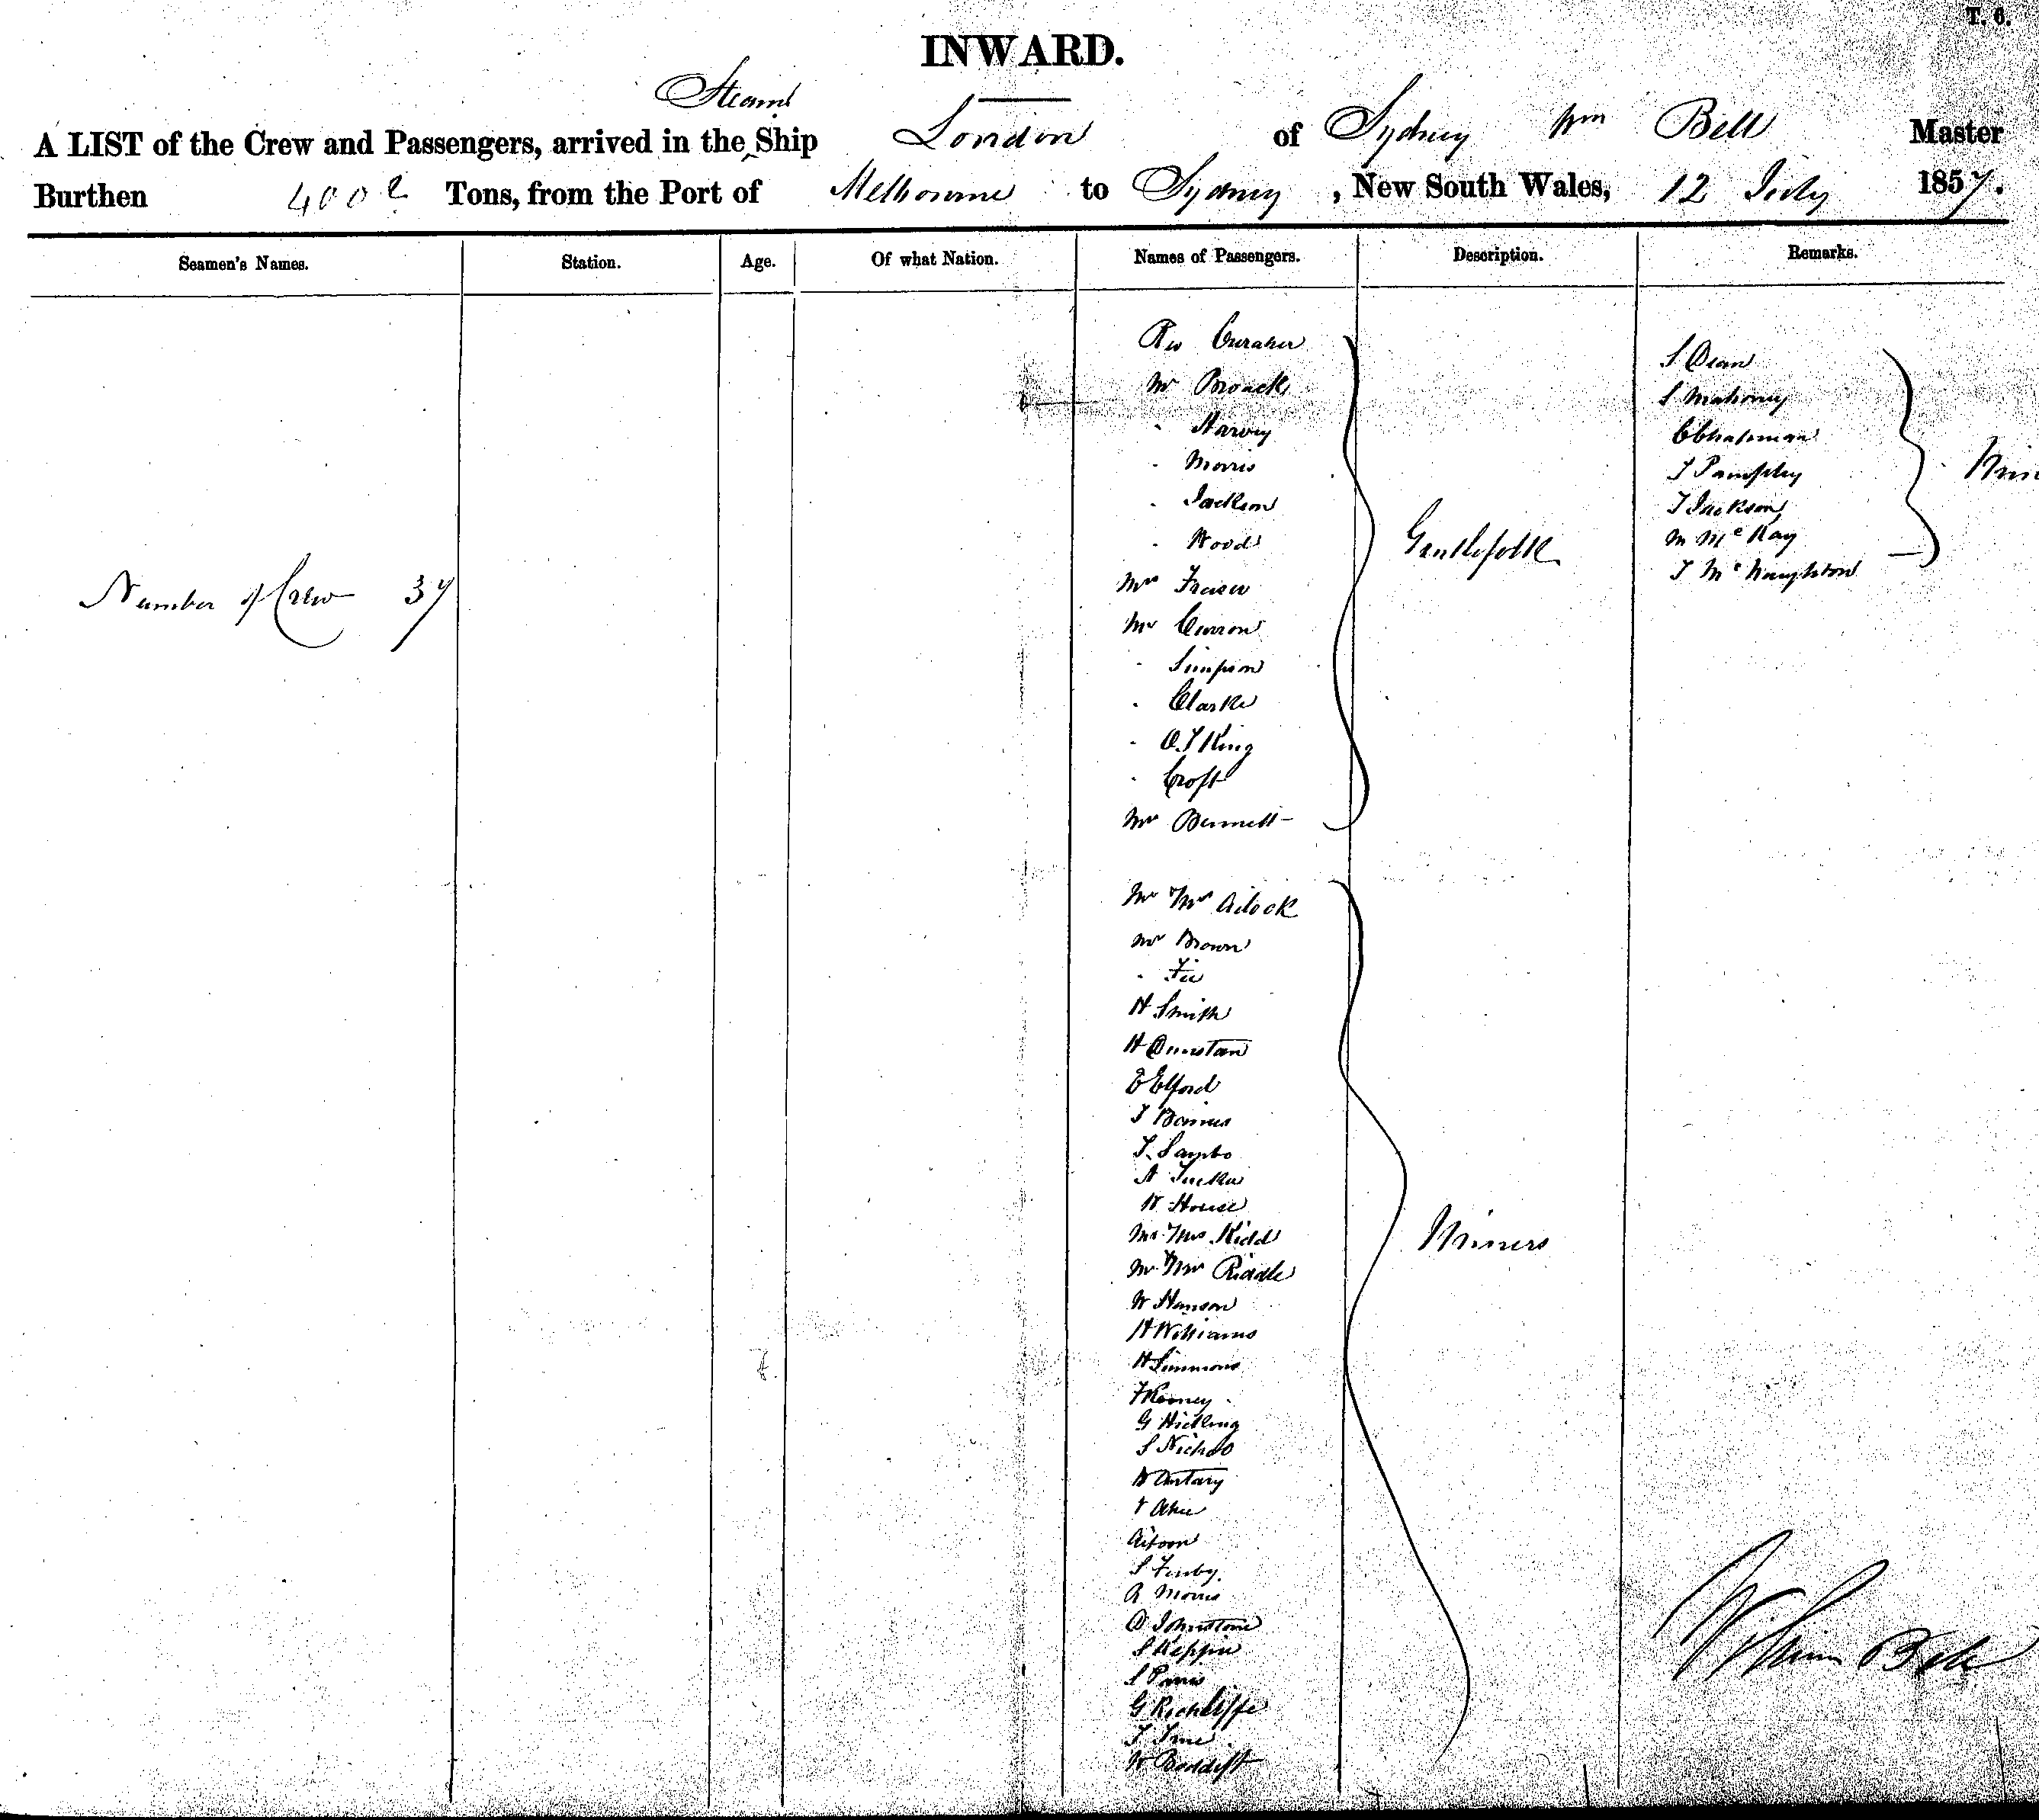 T. 6.
INWARD.
Steam
A LIST of the Crew and Passengers, arrived in the Ship London of Sydney Wm Bell Master
Burthen 400 Tons, from the Port of Melbourne to Sydney, New South Wales, 12 July 1857.
Seamen's Names. Station. Age. Of what Nation. Names of Passengers. Description. Remarks.
Number of Crew 37
Rev Curaher
Mr
" Harvey
" Morris
" Jackson
" Wood
Mrs Fraser
Mr Curron
" Simpson
" Clarke
" O. T King
" Croft
Mrs Bennett
Gentlefolk
Mr & Mrs Adcock
Mr Brown
" Fee
H Smith
H Dunstan
E Elford
T
T. Sambo
A Tucker
W House
Mr & Mrs Kidd
Mr & Mrs Riddle
W Hanson
H Williams
H Simmons
T Rooney
G Hickling
S Nichols
W Antary
S Finby
R Morris
D Johnstone
S Keppie
S
G Rochliffe
T
W Boddift
Miners
S Dean
S Mahoney
C Chapman
T Pamphey
T Jackson
M McKay
T McNaughton
Min
William Bell